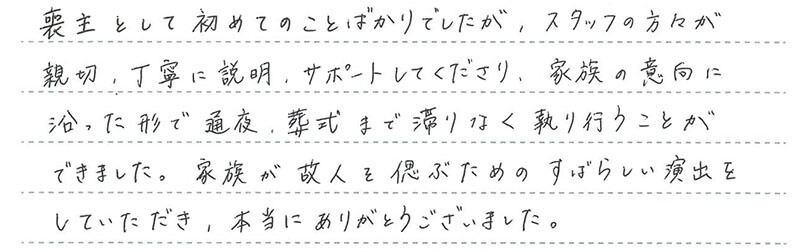 喪主として初めてのことばかりでしたが、スタッフの方々が
親切、丁寧に説明、サポートしてくださり、家族の意向に
沿った形で通夜、葬式まで滞りなく執り行うことが
できました。家族が故人を偲ぶためのすばらしい演出を
していただき、本当にありがとうございました。